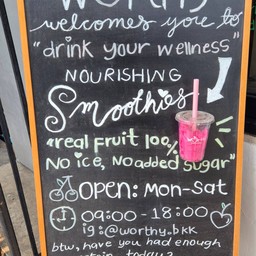 WORTHY
welcomes you to
"drink your wellness"
NOURISHING
Smoothies
"real fruit 100%
No ice, No added sugar"
OPEN: Mon-Sat
09:00-18:00
ig:@worthy.bkk
btw, have you had enough
today?